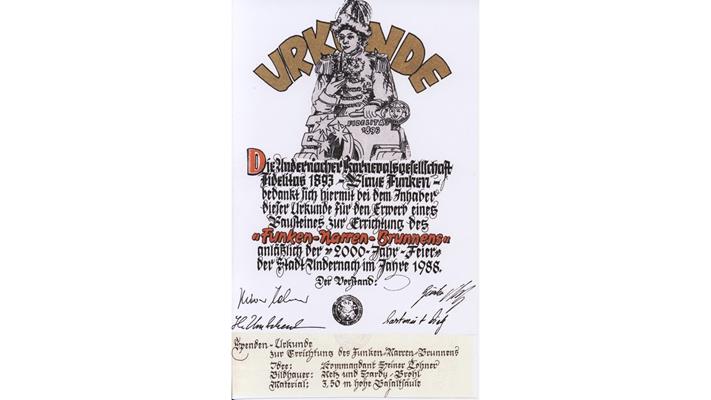 URKUNDE
FIDELITAS
1893
Die Andernacher Karnevalsgesellschaft
Fidelitas 1893 – Blaue Funken –
bedankt sich hiermit bei dem Inhaber
dieser Urkunde für den Erwerb eines
Bausteines zur Errichtung des
«Funken-Narren-Brunnens»
anläßlich der »2000-Jahr-Feier«
der Stadt Andernach im Jahre 1988.
Der Vorstand:
Spenden-Urkunde
zur Errichtung des Funken-Narren-Brunnens
Idee: Kommandant Heiner Lohner
Bildhauer: Netz und Hardy-Brohl
Material: 3,50 m hohe Basaltsäule